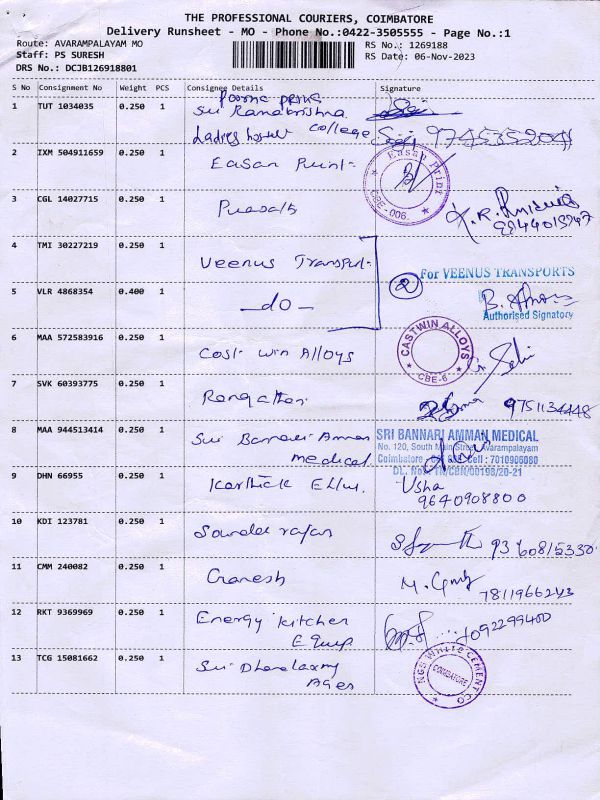 THE PROFESSIONAL COURIERS, COIMBATORE
Delivery Runsheet - MO - Phone No.:0422-3505555 - Page No.:1
Route: AVARAMPALAYAM MO
RS No.: 1269188
Staff: PS SURESH
RS Date: 06-Nov-2023
DRS No.: DCJB126918801
S No Consignment No Weight PCS Consignee Details Signature
1 TUT 1034035 0.250 1
Sri Ramakrishna
Ladies hostel college
2 IXM 504911659 0.250 1 Easan Print
Easan Print
CBE -006.
3 CGL 14027715 0.250 1
4 TMI 30227219 0.250 1 Veenus Transport
2
For VEENUS TRANSPORTS
5 VLR 4868354 0.400 1 -do-
Authorised Signatory
6 MAA 572583916 0.250 1 Cost win Alloys
CASTWIN ALLOYS
CBE-6
7 SVK 60393775 0.250 1
9751134448
8 MAA 944513414 0.250 1 Sri Bannari Amman
medical
SRI BANNARI AMMAN MEDICAL
No. 120, South Main Street, Avarampalayam
Coimbatore Cell : 7010906080
9 DHN 66955 0.250 1 Karthick
Usha
9640908800
10 KDI 123781 0.250 1 Soundar rajan
11 CMM 240082 0.250 1 Ganesh
12 RKT 9369969 0.250 1 Energy kitchen
Equip
13 TCG 15081662 0.250 1 Sri Dhanalaxmy
NGS WHITE CEMENT CO
COIMBATORE